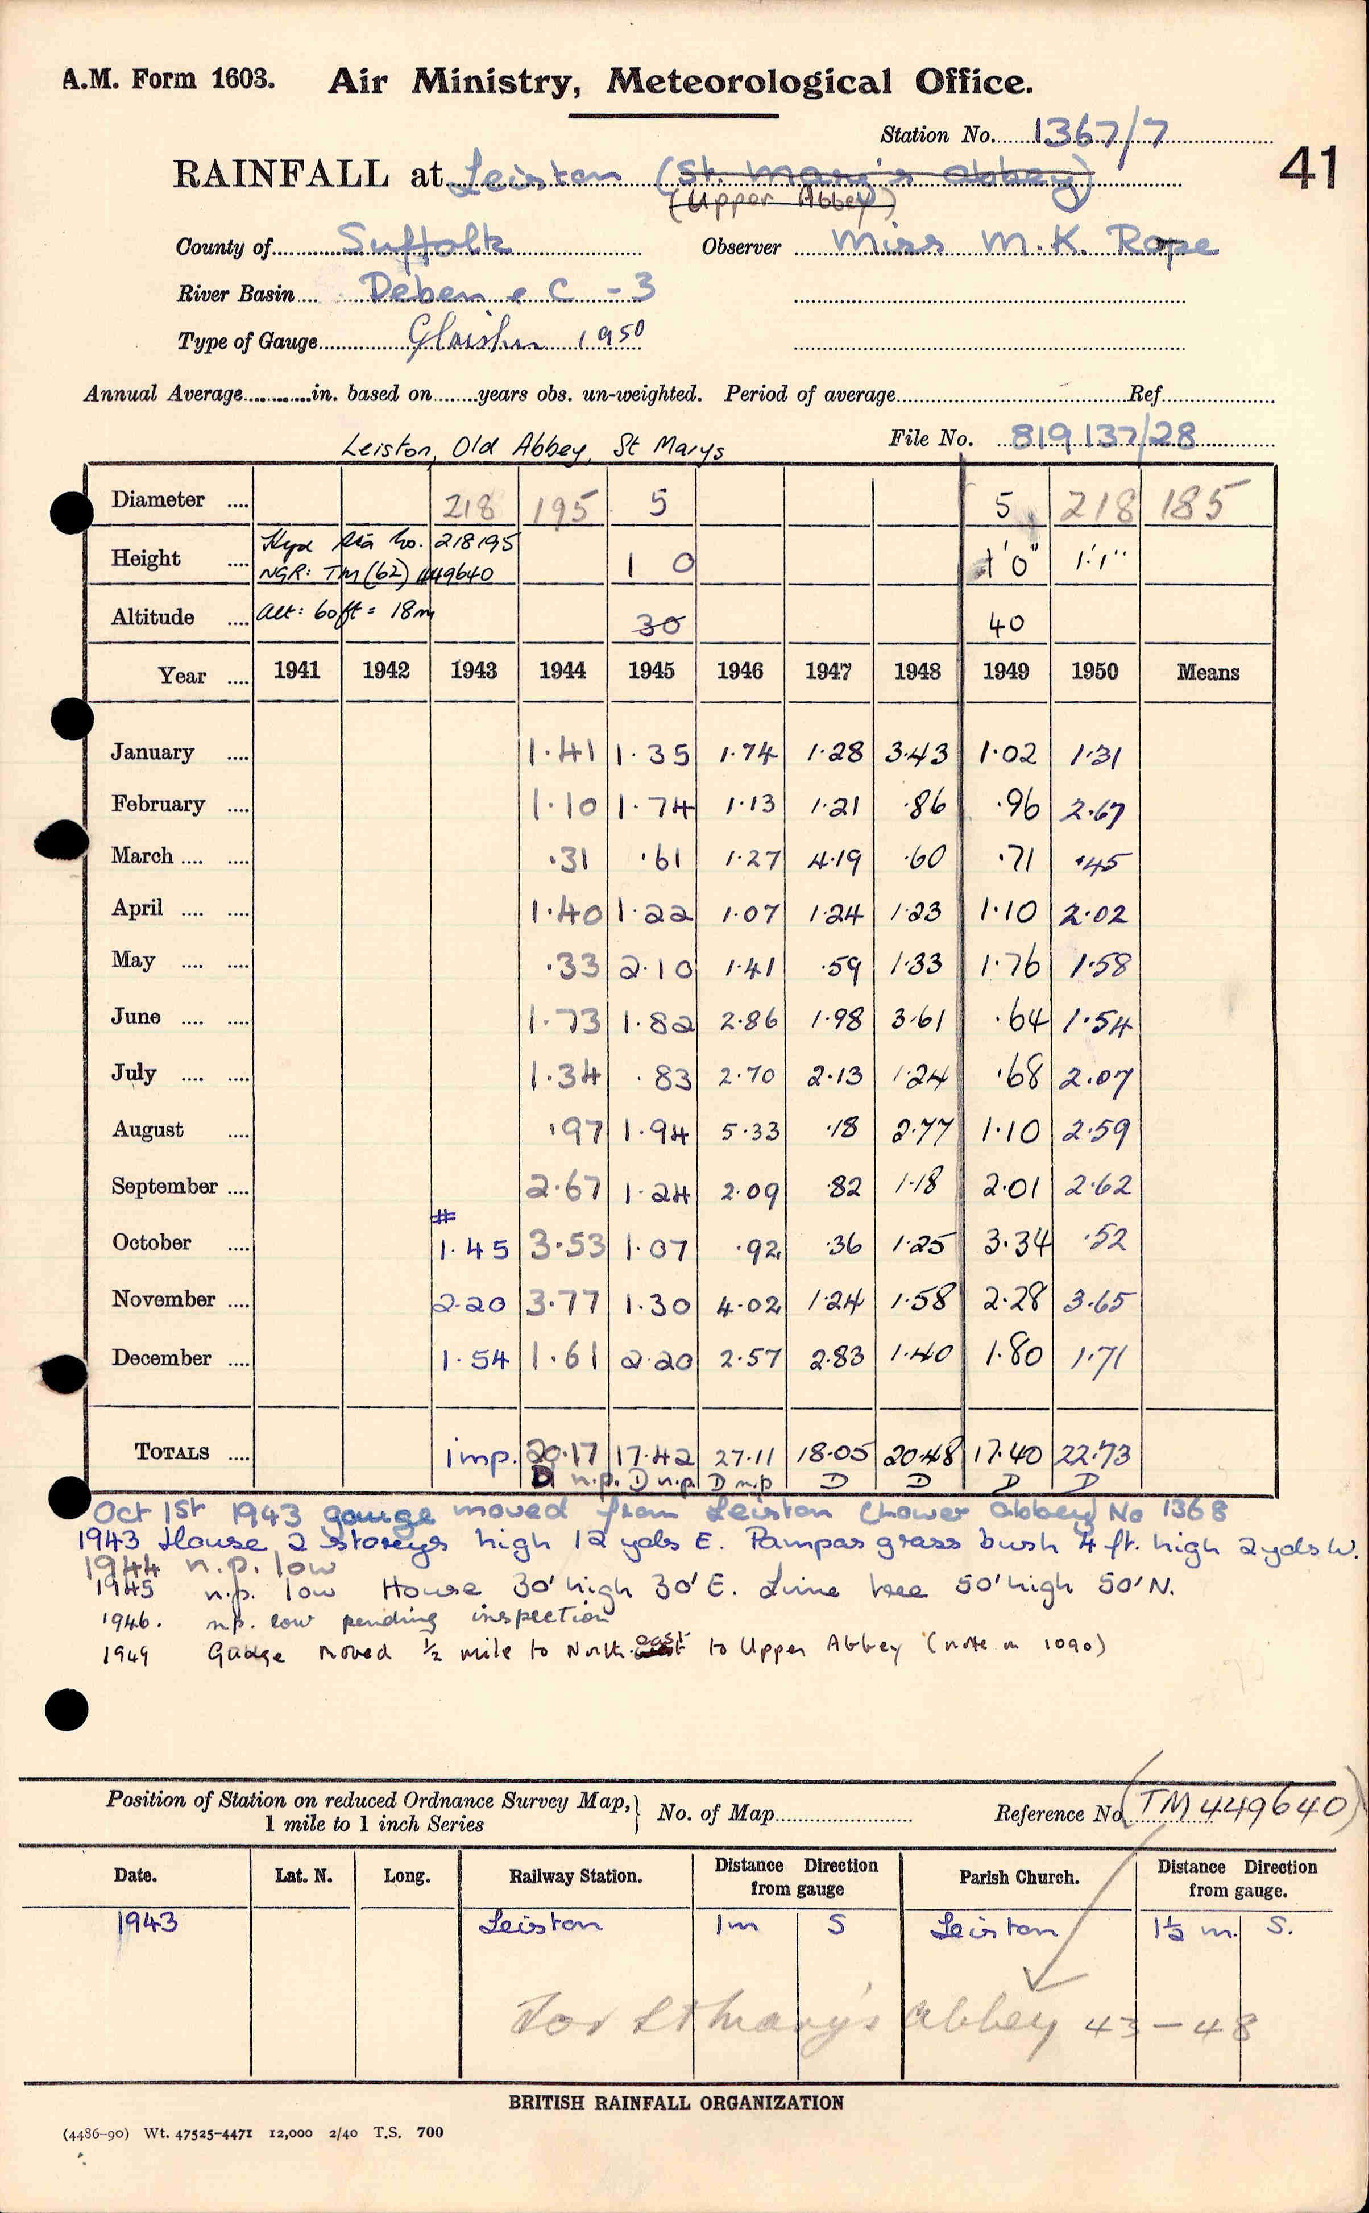 A.M. Form 1603. Air Ministry, Meteorological Office.
Station No. 1367/7
41
RAINFALL at Leiston (St. Mary's Abbey)
(Upper Abbey)
County of Suffolk Observer Miss M. K. Rope
River Basin Deben & C - 3
Type of Gauge Glaisher 1950
Annual Average in. based on years obs. un-weighted. Period of average Ref.
File No. 819137/28
Leiston, Old Abbey, St Marys
Diameter 218 195 5 5 218 185
Hyd Sta No. 218195
Height 1 0 1'0" 1'.1''
NGR: TM (62) 449640
Altitude Alt: 60ft = 18m 30 40
Year 1941 1942 1943 1944 1945 1946 1947 1948 1949 1950 Means
January 1.41 1.35 1.74 1.28 3.43 1.02 1.31
February 1.10 1.74 1.13 1.21 .86 .96 2.67
March .31 .61 1.27 4.19 .60 .71 .45
April 1.40 1.22 1.07 1.24 1.23 1.10 2.02
May .33 2.10 1.41 .59 1.33 1.76 1.58
June 1.73 1.82 2.86 1.98 3.61 .64 1.54
July 1.34 .83 2.70 2.13 1.24 .68 2.07
August .97 1.94 5.33 .18 2.77 1.10 2.59
September 2.67 1.24 2.09 .82 1.18 2.01 2.62
#
October 1.45 3.53 1.07 .92 .36 1.25 3.34 .52
November 2.20 3.77 1.30 4.02 1.24 1.58 2.28 3.65
December 1.54 1.61 2.20 2.57 2.83 1.40 1.80 1.71
TOTALS imp. 20.17 17.42 27.11 18.05 20.48 17.40 22.73
D n.p. D n.p. D n.p D D D D
Oct 1st 1943 gauge moved from Leiston (Lower Abbey) No 1368
1943 House 2 storeys high 12 yds E. Pampas grass bush 4 ft. high 2 yds W.
1944 n.p. low
1945 n.p. low House 30' high 30' E. Lime tree 50' high 50' N.
1946. n.p. low pending inspection
1949 Gauge moved ½ mile to North east to Upper Abbey (note in 1090)
Position of Station on reduced Ordnance Survey Map, 1 mile to 1 inch Series } No. of Map Reference No. (TM 449640)
Date. Lat. N. Long. Railway Station. Distance Direction from gauge Parish Church. Distance Direction from gauge.
1943 Leiston 1m S Leiston 1½ m. S.
For St Mary's Abbey 43 - 48
BRITISH RAINFALL ORGANIZATION
(4486-90) Wt. 47525-4471 12,000 2/40 T.S. 700